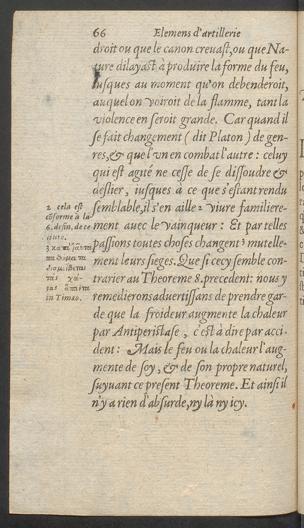 66 Elemens d'artillerie
droit ou que le canon crevast, ou que Na-
ture dilayast à produire la forme du feu,
iusques au moment qu'on debenderoit,
auquel on voiroit de la flamme, tant la
violence en seroit grande. Car quand il
se fait changement (dit Platon) de gen-
res, & que l'vn en combat l'autre: celuy
qui est agité ne cesse de se dissoudre &
deslier, iusques à ce que s'estant rendu
semblable, il s'en aille 2 viure familiere-
ment avec le vainqueur: Et par telles
passions toutes choses changent 3 mutelle-
ment leurs sieges. Que si cecy semble con-
trarier au Theoreme 8. precedent: nous y
remedierons advertissans de prendre gar-
de que la froideur augmente la chaleur
par Antiperistase, c'est à dire par acci-
dent: Mais le feu ou la chaleur l'aug-
mente de soy, & de son propre naturel,
suyuant ce present Theoreme. Et ainsi il
n'y a rien d'absurde, ny là ny icy.
2 cela est
cōforme à la
6. defin. de ce
in Timæo.